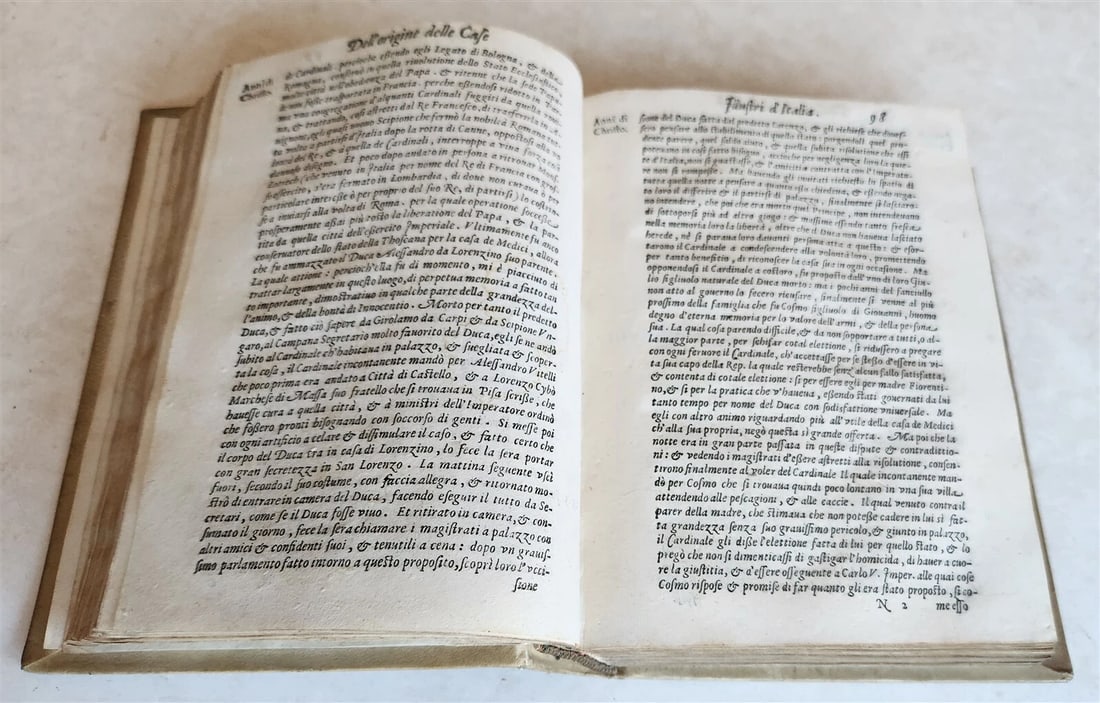 Dell'origine delle Case
Anni di
Christo.
di Cardinale; percioche essendo egli Legato di Bologna, & della
Romagna, confirmò in quella riuolutione dello Stato Ecclesiastico
molte città nell'obedienza del Papa. & ritenne che la sede Papa-
le non fosse trasportata in Francia. perche essendosi ridotto in
una congregatione d'alquanti Cardinali fuggiti da quella
na, & trattando, così astretti dal Re Francesco, di trasferirla in
uignone, egli quasi nuouo Scipione che fermò la nobiltà Romana
uolta a partirsi d'Italia dopo la rotta di Canne, oppostosi alla uo-
lontà del Re, & a quella de Cardinali, interroppe a viua forza
lannoso disegno. Et poco dopo andato in persona a ritrouar Mons.
Lotrech (che venuto in Italia per nome del Re di Francia con gros-
so essercito, s'era fermato in Lombardia, di doue non curaua per
particolare interesse ò per proprio del suo Re, di partirsi) lo costrin-
se a inuiarsi alla volta di Roma. per la quale operatione successe
prosperamente assai più tosto la liberatione del Papa, & la par-
tita da quella città dell'essercito Imperiale. Vltimamente fu anco
conseruatore dello stato della Thoscana per la casa de Medici, allora
che fu ammazzato il Duca Alessandro da Lorenzino suo parente.
La quale attione: percioch'ella fu di momento, mi è piacciuto di
trattar largamente in questo luogo, di perpetua memoria a fatto tan
to importante, dimostratiuo in qualche parte della grandezza del-
l'animo, & della bontà di Innocentio. Morto per tanto il predetto
Duca, & fatto ciò sapere da Girolamo da Carpi & da Scipione Vn-
garo, al Campana Segretario molto fauorito del Duca, egli se ne andò
subito al Cardinale ch'habitaua in palazzo, & suegliata & scoper-
ta la cosa, il Cardinale incontanente mandò per Alessandro Vitelli
che poco prima era andato a Città di Castello, & a Lorenzo Cybò
Marchese di Massa suo fratello che si trouaua in Pisa scrisse, che
hauesse cura a quella città, & a ministri dell'Imperatore ordinò
che fossero pronti bisognando con soccorso di genti. Si messe poi
con ogni artificio a celare & dissimulare il caso, & fatto certo che
il corpo del Duca era in casa di Lorenzino, lo fece la sera portar
con gran secretezza in San Lorenzo. La mattina seguente vscì
fuori, secondo il suo costume, con faccia allegra, & ritornato mo-
strò di entrare in camera del Duca, facendo eseguir il tutto da Se-
cretari, come se il Duca fosse viuo. Et ritirato in camera, & con-
sumato il giorno, fece la sera chiamare i magistrati a palazzo con
altri amici & confidenti suoi, & tenutili a cena: dopo vn grauis-
simo parlamento fatto intorno a questo proposito, scoprì loro l'vcci-
sione
Illustri d'Italia.
98
Anni di
Christo.
sione del Duca fatta dal predetto Lorenzo, & gli richiese che douef-
sero pensare allo stabilimento di quello stato: porgendoli quel pro-
dente parere, quel saldo aiuto, & quella subita risolutione che essi
poteuano in caso fatto bisogno, accioche per negligenza loro la quie-
te d'Italia, non si guastasse, & l'amicitia contratta con l'Imperato-
re non si rompesse. Ma hauendo gli inuitati richiesto lo spatio di
tutta quella notte a pensare a quanto esso chiedeua, & essendo nega-
to loro il differire & il partirsi di palazzo, finalmente si lasciaro-
no intendere, che poi che era morto quel Principe, non intendeuano
di sottoporsi più ad altro giogo: & massime essendo tanto fresca
nella memoria loro la libertà, oltre che il Duca non haueua lasciato
herede, nè si paraua loro dauanti persona atta a questo: & esor-
tarono il Cardinale a condescendere alla volontà loro, promettendo
per tanto beneficio, di riconoscer la casa sua in ogni occasione. Ma
opponendosi il Cardinale a costoro, fu proposto dall'vno di loro Giu-
lio figliuolo naturale del Duca morto: ma i pochi anni del fanciullo
non atto al gouerno lo fecero ricusare, finalmente si venne al più
prossimo della famiglia che fu Cosmo figliuolo di Giouanni, huomo
degno d'eterna memoria per lo valore dell'armi, & della persona
sua. La qual cosa parendo difficile, & da non sopportare a tutti, o al-
la maggior parte, per schifar cotal elettione, si ridussero a pregare
con ogni feruore il Cardinale, ch'accettasse per se stesso d'essere in vi-
ta sua capo della Rep. la quale resterebbe senz'alcun fallo satisfatta,
& contenta di cotale elettione: sì per essere egli per madre Fiorenti-
no, & sì per la pratica che v'haueua, essendo stati gouernati da lui
tanto tempo per nome del Duca con sodisfattione vniuersale. Ma
egli con altro animo riguardando più all'vtile della casa de Medici
ch'alla sua propria, negò questa sì grande offerta. Ma poi che la
notte era in gran parte passata in queste dispute & contradittio-
ni: & vedendo i magistrati d'essere astretti alla risolutione, consen-
tirono finalmente al voler del Cardinale. Il quale incontanente man-
dò per Cosmo che si trouaua quindi poco lontano in vna sua villa
attendendo alle pescagioni, & alle caccie. Il qual venuto contra il
parer della madre, che stimaua che non potesse cadere in lui sì fat-
ta grandezza senza suo grauissimo pericolo, & giunto in palazzo,
il Cardinale gli disse l'elettione fatta di lui per quello stato, & lo
pregò che non si dimenticassi di gastigar l'homicida, di hauer a cuo-
re la giustitia, & d'essere osseguente a Carlo V. Imper. alle quai cose
Cosmo rispose & promise di far quanto gli era stato proposto, si co-
N 2
me esso